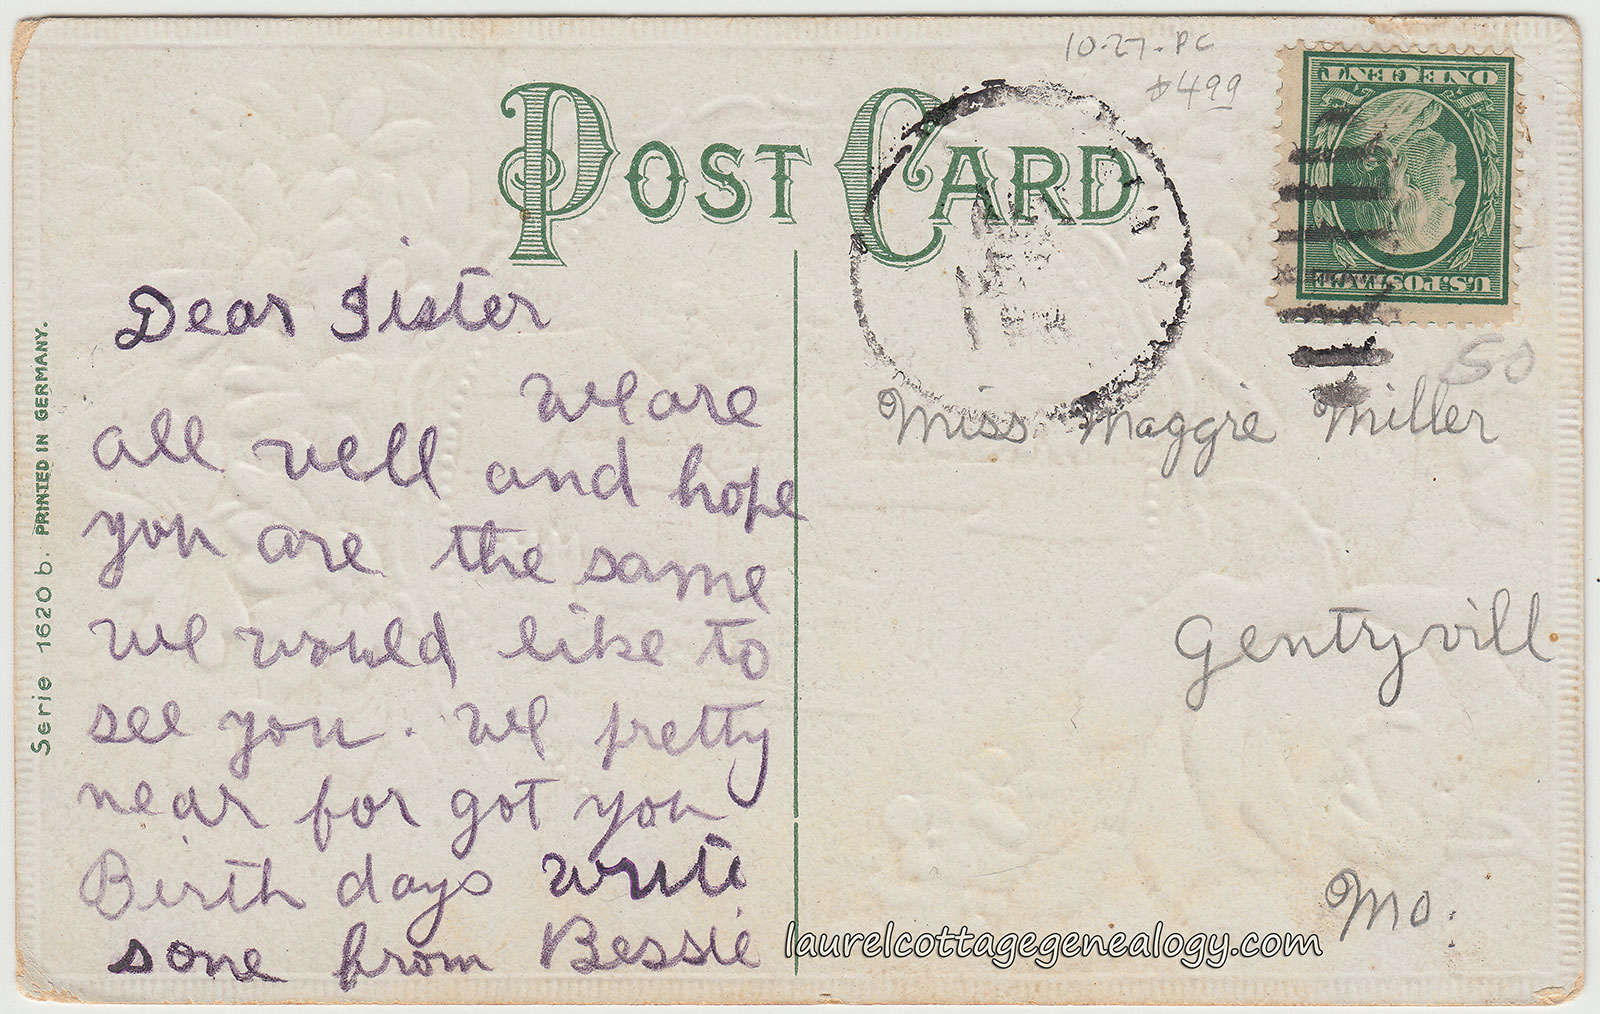 10-27-PC
$499
POST CARD
ONE CENT
U.S. POSTAGE
50
Dear Sister
We are
all well and hope
you are the same
we would like to
see you. We pretty
near for got you
Birth days write
sone from Bessie
Miss Maggie Miller
Gentryvill
Mo.
Serie 1620 b. PRINTED IN GERMANY.
laurelcottagegenealogy.com